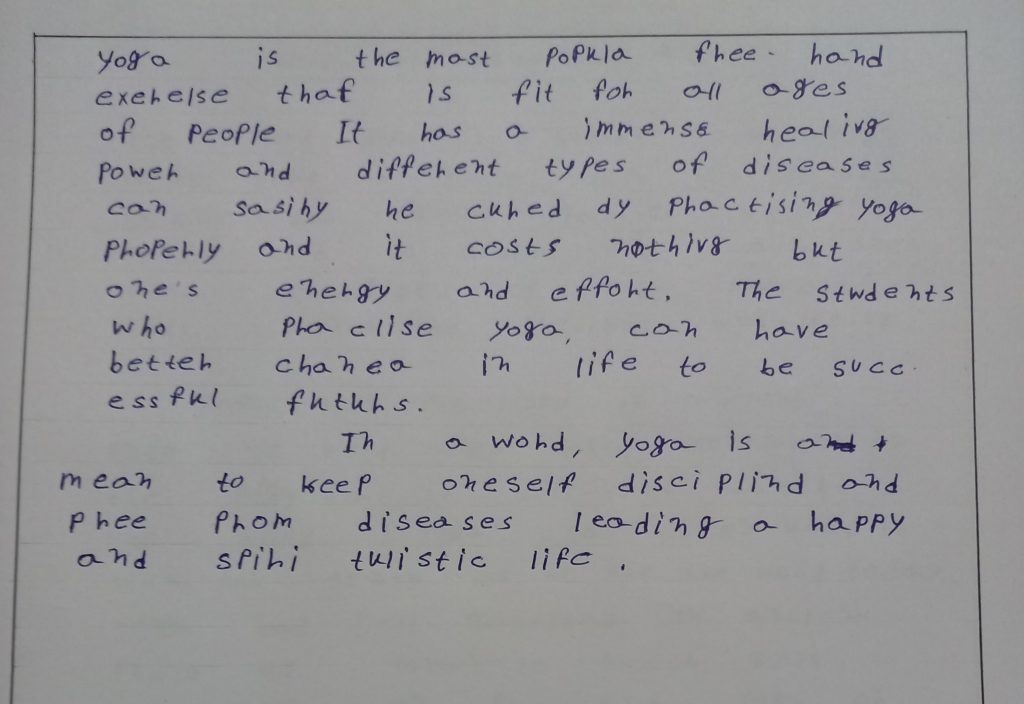 yoga is the most popula free-hand
exerelse that is fit for all ages
of people It has a immense healivg
power and different types of diseases
can sasiry he cured dy practising yoga
properly and it costs nothivg but
one's energy and effort. The stwdents
who pra clise yoga, can have
better chanea in life to be succ-
essful futurs.
In a word, yoga is
mean to keep oneself disci plind and
phee phom diseases leading a happy
and spiri tulistic life.